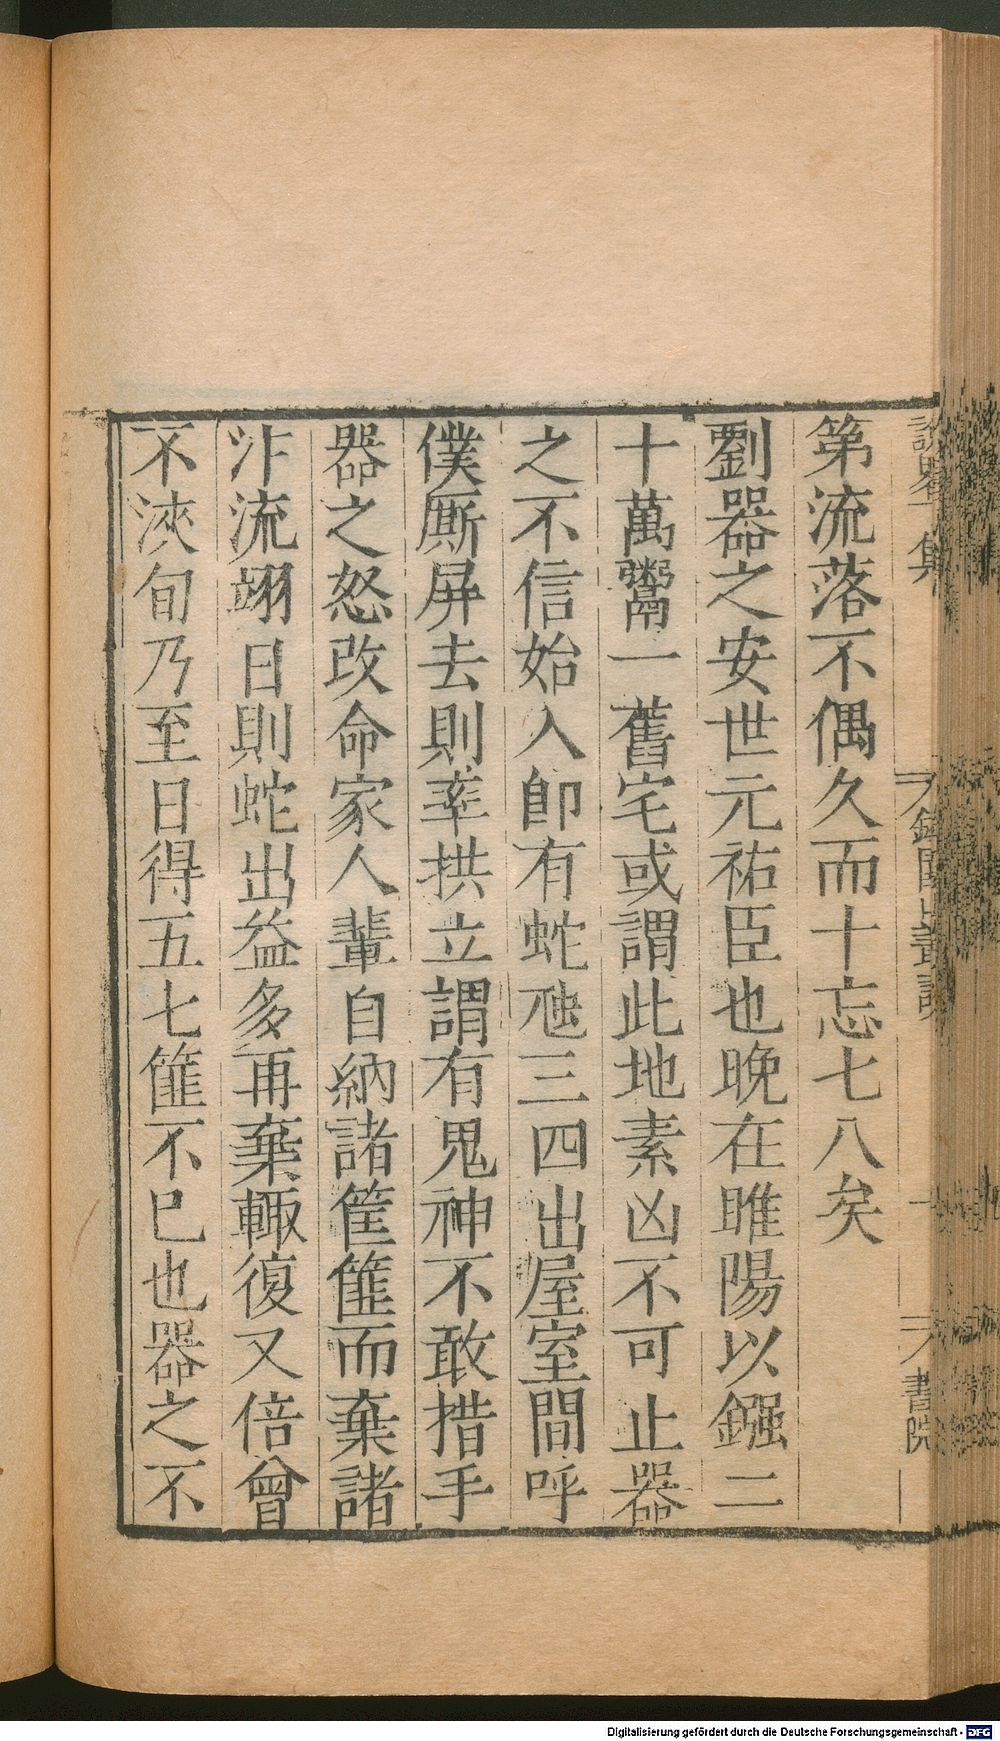 第流落不偶久而十忘七八矣
劉器之安世元祐臣也晚在睢陽以鏹二
十萬鬻一舊宅或謂此地素凶不可止器
之不信始入卽有蛇虺三四出屋室間呼
僕厮屏去則率拱立謂有鬼神不敢措手
器之怒改命家人輩自納諸筐篚而棄諸
汴流翊日則蛇出益多再棄輙復又倍曾
不浹旬乃至日得五七篚不已也器之不
書院
Digitalisierung gefördert durch die Deutsche Forschungsgemeinschaft - DFG